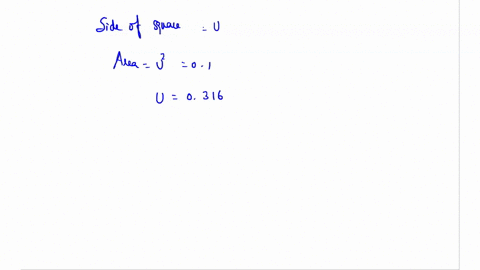 Side of square = U
Area = U² = 0.1
U = 0.316